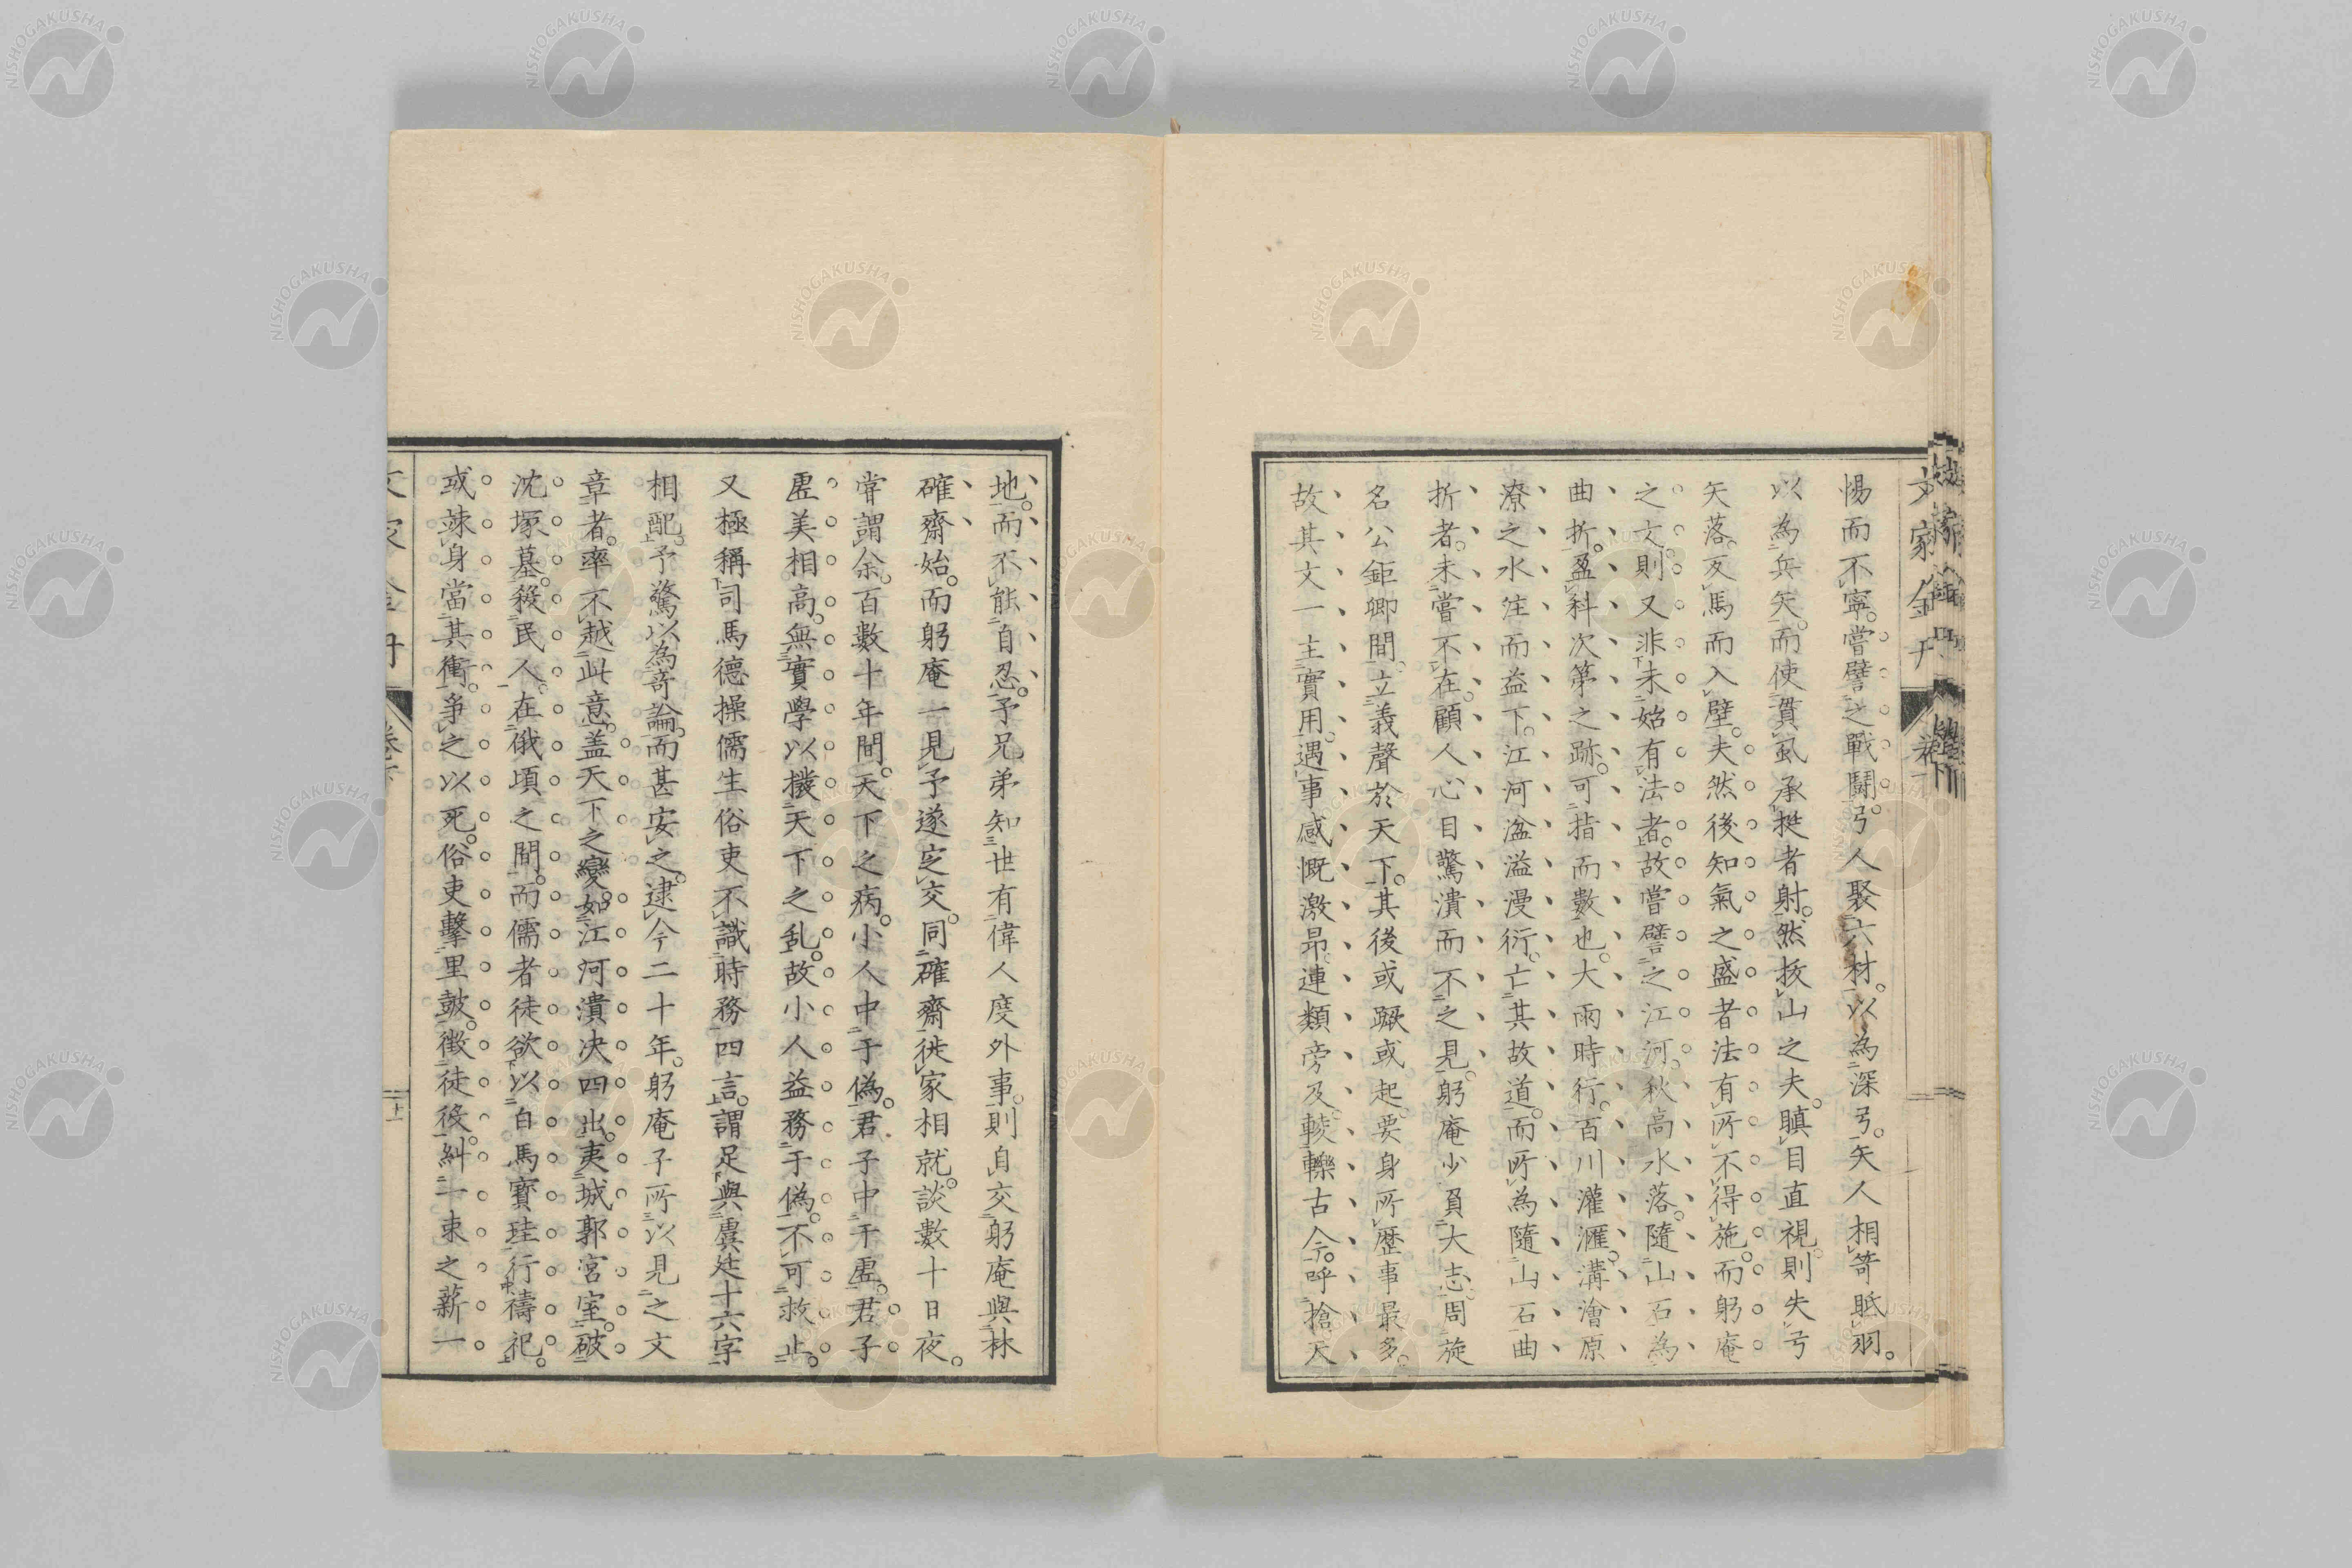 惕而不寧。嘗譬之戰鬪。弓人聚六材。以為深弓。矢人相笴眂羽。
以為兵矢。而使貫虱承挺者射。然扳山之夫。瞋目直視。則失弓
矢落。反馬而入壁。夫然後知氣之盛者法有所不得施。而躬庵
之文則又非未始有法者。故嘗譬之江河。秋高水落。隨山石為
曲折。盈科次第之跡。可指而數也。大雨時行。百川灌滙。溝澮原
潦之水注而益下。江河湓溢漫衍。亡其故道。而所為隨山石曲
折者。未嘗不在。顧人心目驚潰而不之見。躬庵少負大志。周旋
名公鉅卿間。立義聲於天下。其後或蹶或起。要身所歷事最多。
故其文一主實用。遇事感慨激昂。連類旁及。輘轢古今。呼搶天
地。而不能自忍。予兄弟知世有偉人度外事。則自交躬庵與林
確齋始。而躬庵一見予遂定交。同確齋徙家相就。談數十日夜。
常謂余。百數十年間。天下之病。小人中于偽。君子中于虛。君子
虛美相高。無實學以撥天下之乱。故小人益務于偽。不可救止。
又極稱司馬德操儒生俗吏不識時務四言。謂足與虞廷十六字
相配。予驚以為奇論。而甚安之。逮今二十年。躬庵子所以見之文
章者。率不越此意。盖天下之變。如江河潰决四出。夷城郭宮室。破
沈塚墓。殺民人。在俄頃之間。而儒者徒欲以白馬寶珪行禱祀。
或竦身當其衝。爭之以死。俗吏擊里鼓。徵徒役。糾一束之薪一
文家金丹